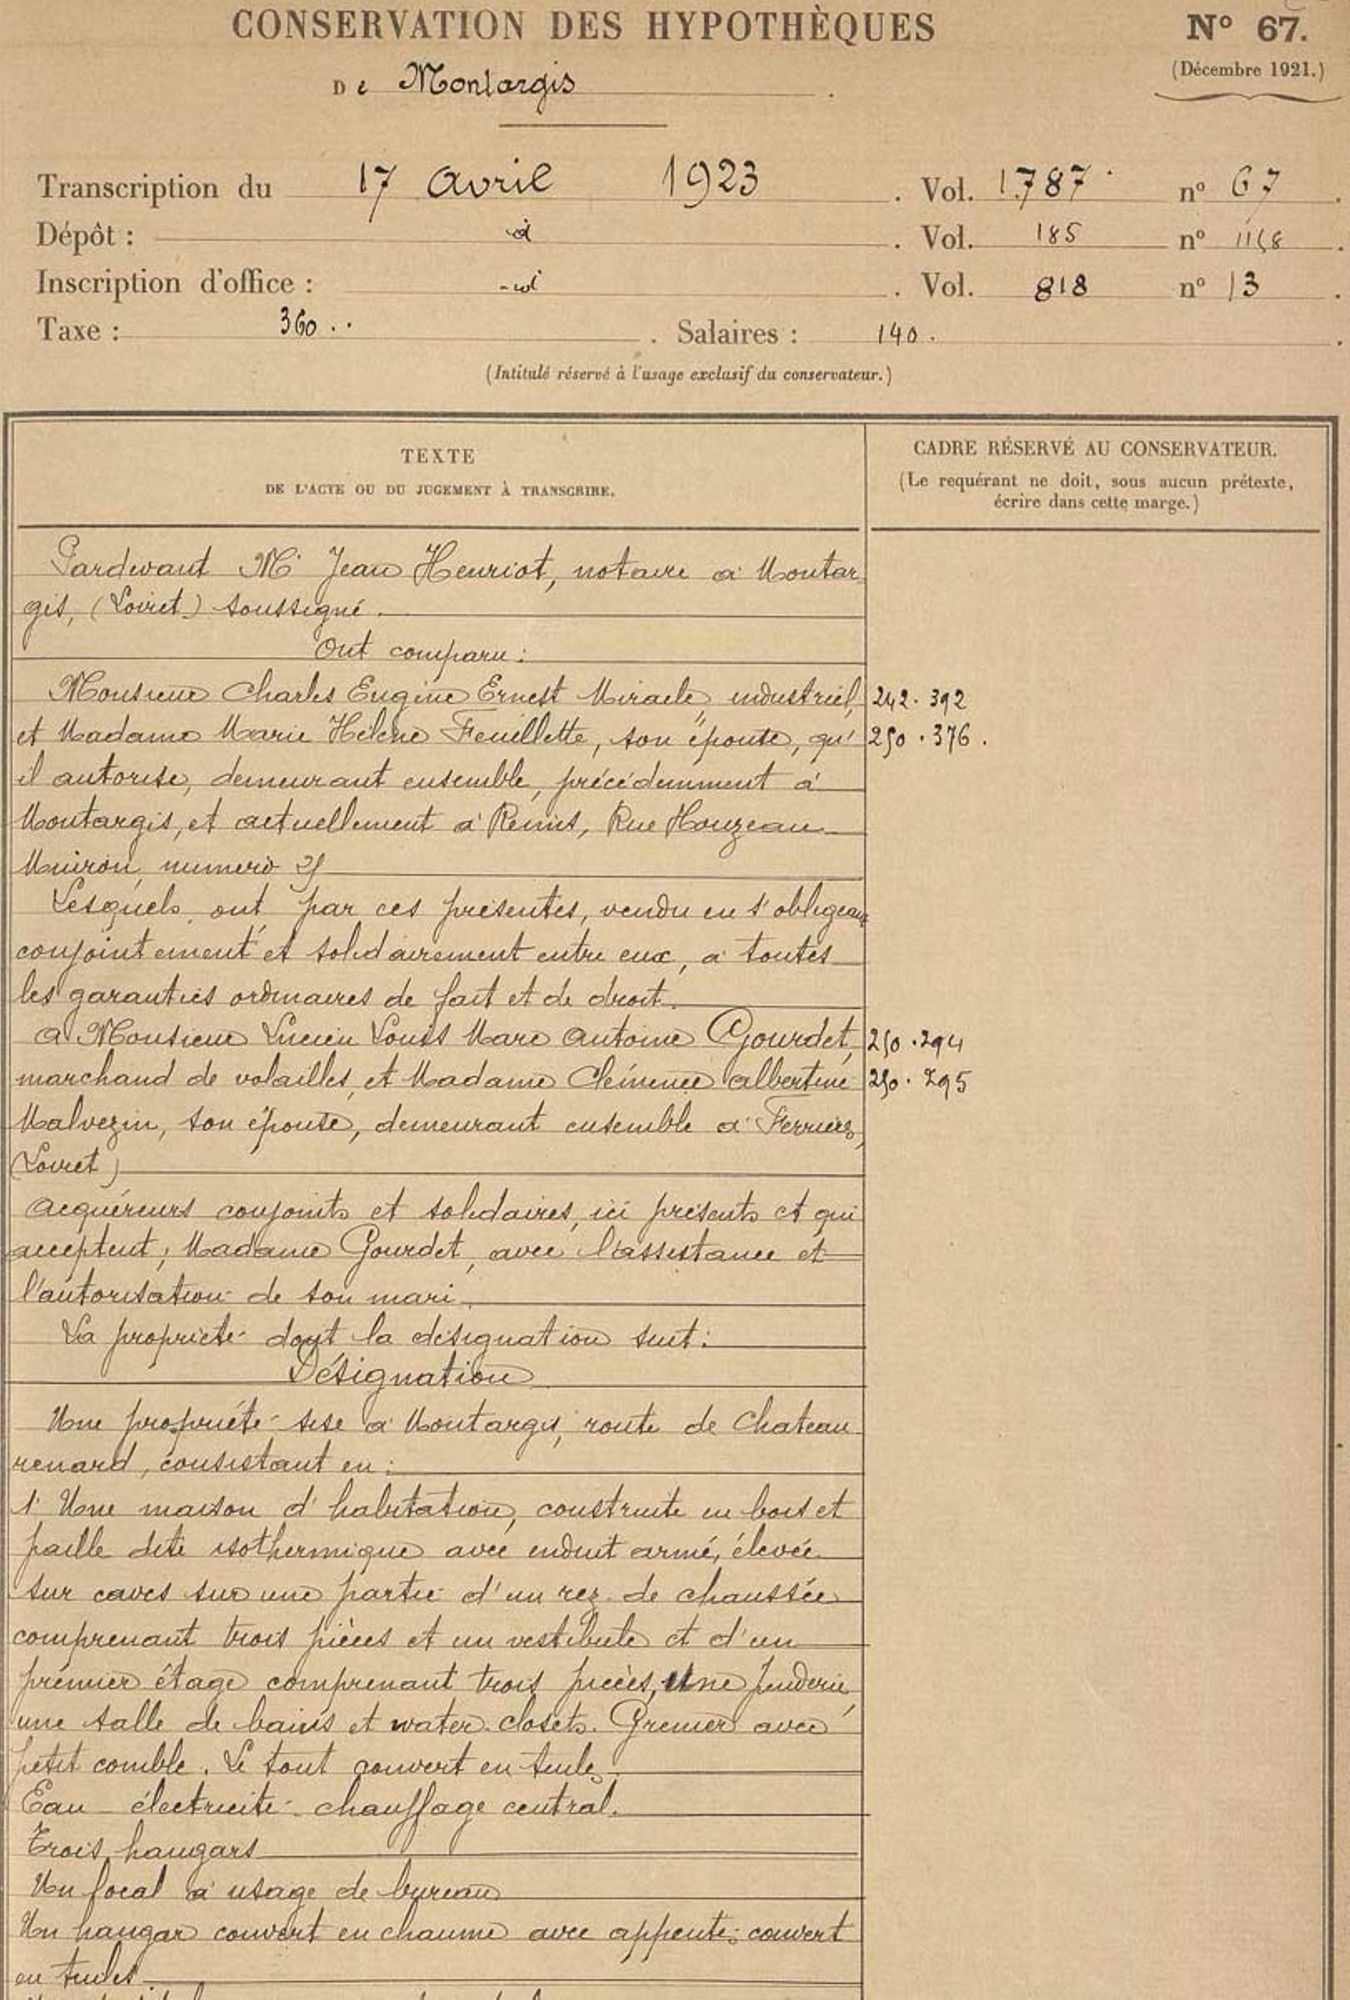 CONSERVATION DES HYPOTHÈQUES
N° 67.
(Décembre 1921.)
De Montargis
Transcription du 17 avril 1923. Vol. 1787 n° 67.
Dépôt : d. Vol. 185 n°
Inscription d'office : d. Vol. 818 n° 13.
Taxe : 360 . . Salaires : 140.
(Intitulé réservé à l'usage exclusif du conservateur.)
TEXTE
DE L'ACTE OU DU JUGEMENT À TRANSCRIRE.
CADRE RÉSERVÉ AU CONSERVATEUR.
(Le requérant ne doit, sous aucun prétexte,
écrire dans cette marge.)
Pardevant Me Jean Henriot, notaire à Montar
gis, (Loiret) soussigné.
Ont comparu :
Monsieur Charles Eugène Ernest Miracle, industriel, 242.392
et Madame Marie Hélène Feuillette, son épouse, qu' 250.376.
il autorise, demeurant ensemble, précédemment à
Montargis, et actuellement à Reims, Rue Houzeau
Muiron, numéro
Lesquels ont par ces présentes, vendu en s'obligeant
conjointement et solidairement entre eux, à toutes
les garanties ordinaires de fait et de droit.
à Monsieur Lucien Louis Marc Antoine Gourdet, 250.294
marchand de volailles, et Madame Clémence Albertine 250.295
Malvezin, son épouse, demeurant ensemble à Ferrières,
(Loiret)
acquéreurs conjoints et solidaires, ici présents et qui
acceptent ; Madame Gourdet, avec l'assistance et
l'autorisation de son mari.
La propriété dont la désignation suit :
Désignation
Une propriété sise à Montargis, route de Chateau
renard, consistant en :
1° Une maison d'habitation, construite en bois et
paille dite isothermique avec enduit armé, élevée
sur caves sur une partie d'un rez-de chaussée
comprenant trois pièces et un vestibule et d'un
premier étage comprenant trois pièces, une penderie,
une salle de bains et water-closets. Grenier avec
petit comble. Le tout couvert en tuiles.
Eau électricité chauffage central.
Trois hangars
Un local à usage de bureau
Un hangar couvert en chaume avec appentis couvert
en tuiles.